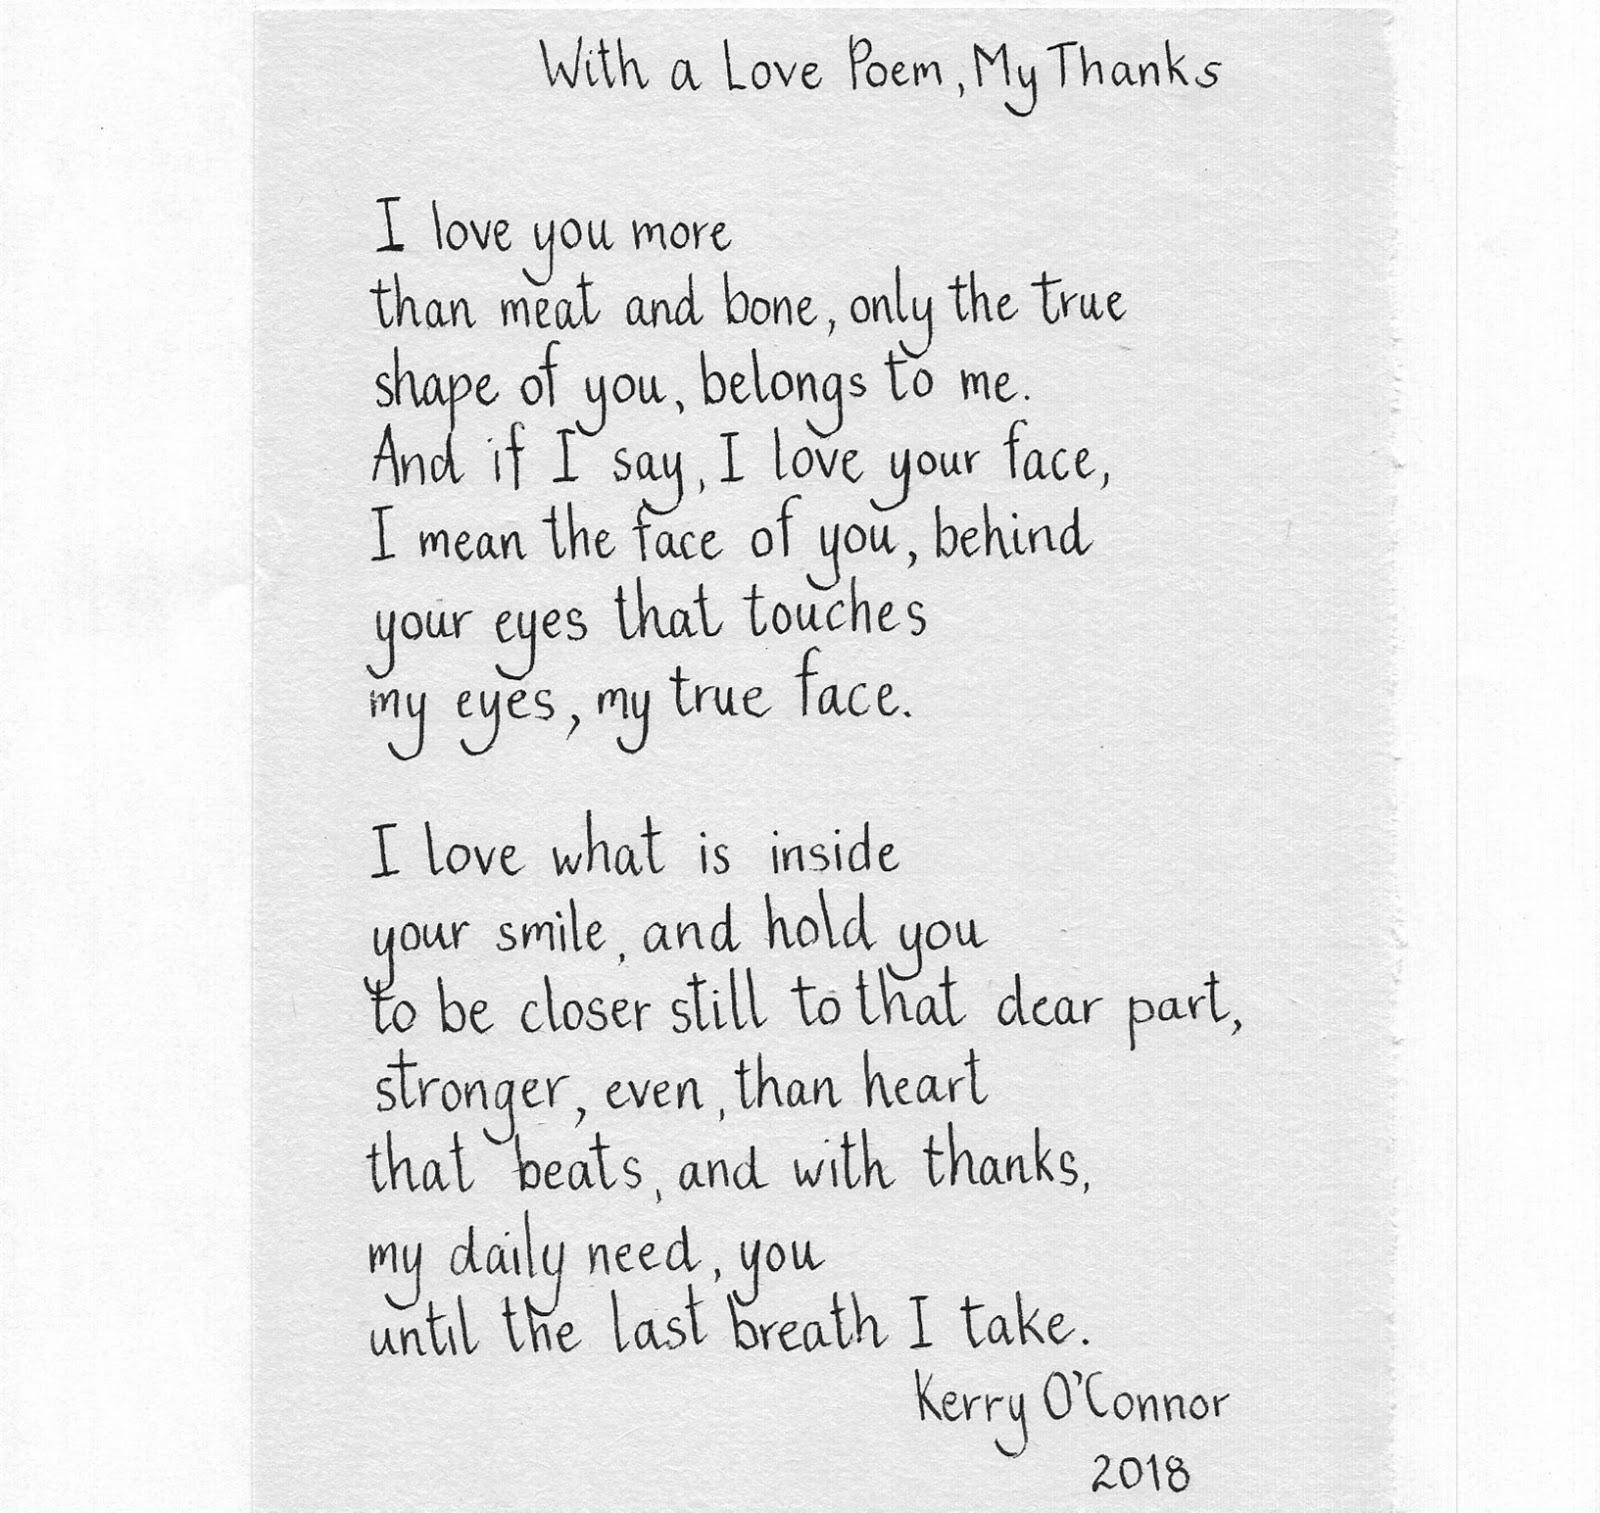 With a Love Poem, My Thanks
I love you more
than meat and bone, only the true
shape of you, belongs to me.
And if I say, I love your face,
I mean the face of you, behind
your eyes that touches
my eyes, my true face.
I love what is inside
your smile, and hold you
to be closer still to that dear part,
stronger, even, than heart
that beats, and with thanks,
my daily need, you
until the last breath I take.
Kerry O'Connor
2018